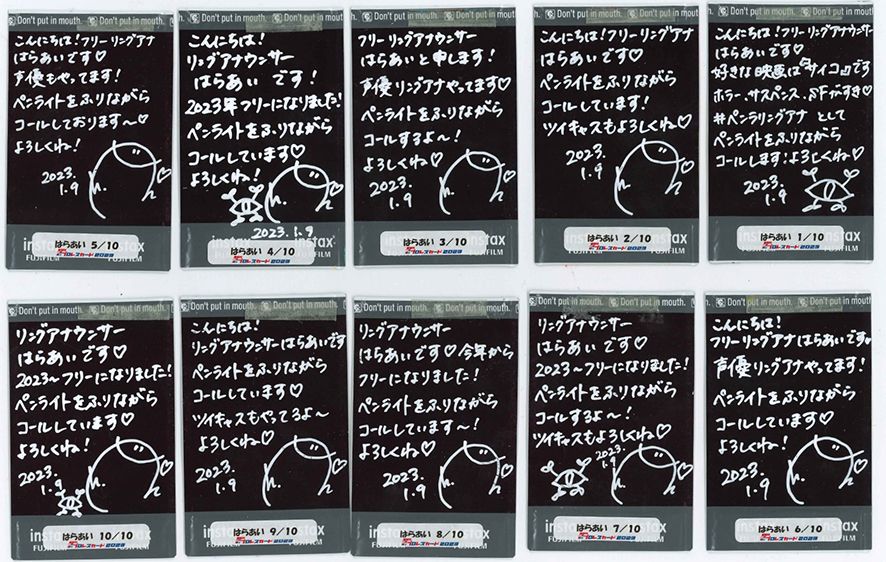 h. Don't put in mouth.
こんにちは!フリーリングアナ
はらあいです♡
声優もやってます!
ペンライトをふりながら
コールしております〜♡
よろしくね!
2023.
1.9
はらあい 5/10
プロレスカード2023
FUJIFILM
Don't put in mouth.
こんにちは!
リングアナウンサー
はらあい です!
2023年フリーになりました!
ペンライトをふりながら
コールしています♡
よろしくね!
2023.1.9
instax
はらあい 4/10
プロレスカード2023
FUJIFILM
Don't put in mouth.
フリーリングアナウンサー
はらあいと申します!
声優リングアナやってます♡
ペンライトをふりながら
コールするよ〜!
よろしくね♡
2023.
1.9
instax
はらあい 3/10
プロレスカード2023
FUJIFILM
Don't put in mouth.
こんにちは!フリーリングアナ
はらあいです♡
ペンライトをふりながら
コールしています!
ツイキャスもよろしくね♡
2023.
1.9
instax
はらあい 2/10
プロレスカード2023
FUJIFILM
h. Don't put in mouth.
こんにちは!フリーリングアナウンサー
はらあいです♡
好きな映画は『サイコ』です
ホラー、サスペンス、SFがすき♡
#ペンラリングアナ として
ペンライトをふりながら
コールします!よろしくね♡
2023.
1.9
instax
はらあい 1/10
プロレスカード2023
FUJIFILM
Don't put in mouth.
リングアナウンサー
はらあいです♡
2023〜フリーになりました!
ペンライトをふりながら
コールしています♡
よろしくね!
2023.
1.9
instax
はらあい 10/10
プロレスカード2023
FUJIFILM
Don't put in mouth.
こんにちは!
リングアナウンサーはらあいです
ペンライトをふりながら
コールしています♡
ツイキャスもやってるよ〜
よろしくね♡
2023.
1.9
instax
はらあい 9/10
プロレスカード2023
FUJIFILM
Don't put in mouth.
リングアナウンサー
はらあいです♡今年から
フリーになりました!
ペンライトをふりながら
コールしています〜!
よろしくね♡
2023.
1.9
instax
はらあい 8/10
プロレスカード2023
FUJIFILM
Don't put in mouth.
リングアナウンサー
はらあいです♡
2023〜フリーになりました!
ペンライトをふりながら
コールするよ〜!
ツイキャスもよろしくね♡
2023.
1.9
instax
はらあい 7/10
プロレスカード2023
FUJIFILM
h. Don't put in mouth.
こんにちは!
フリーリングアナはらあいです♡
声優リングアナやってます!
ペンライトをふりながら
コールしています♡
よろしくね!
2023.
1.9
instax
はらあい 6/10
プロレスカード2023
FUJIFILM